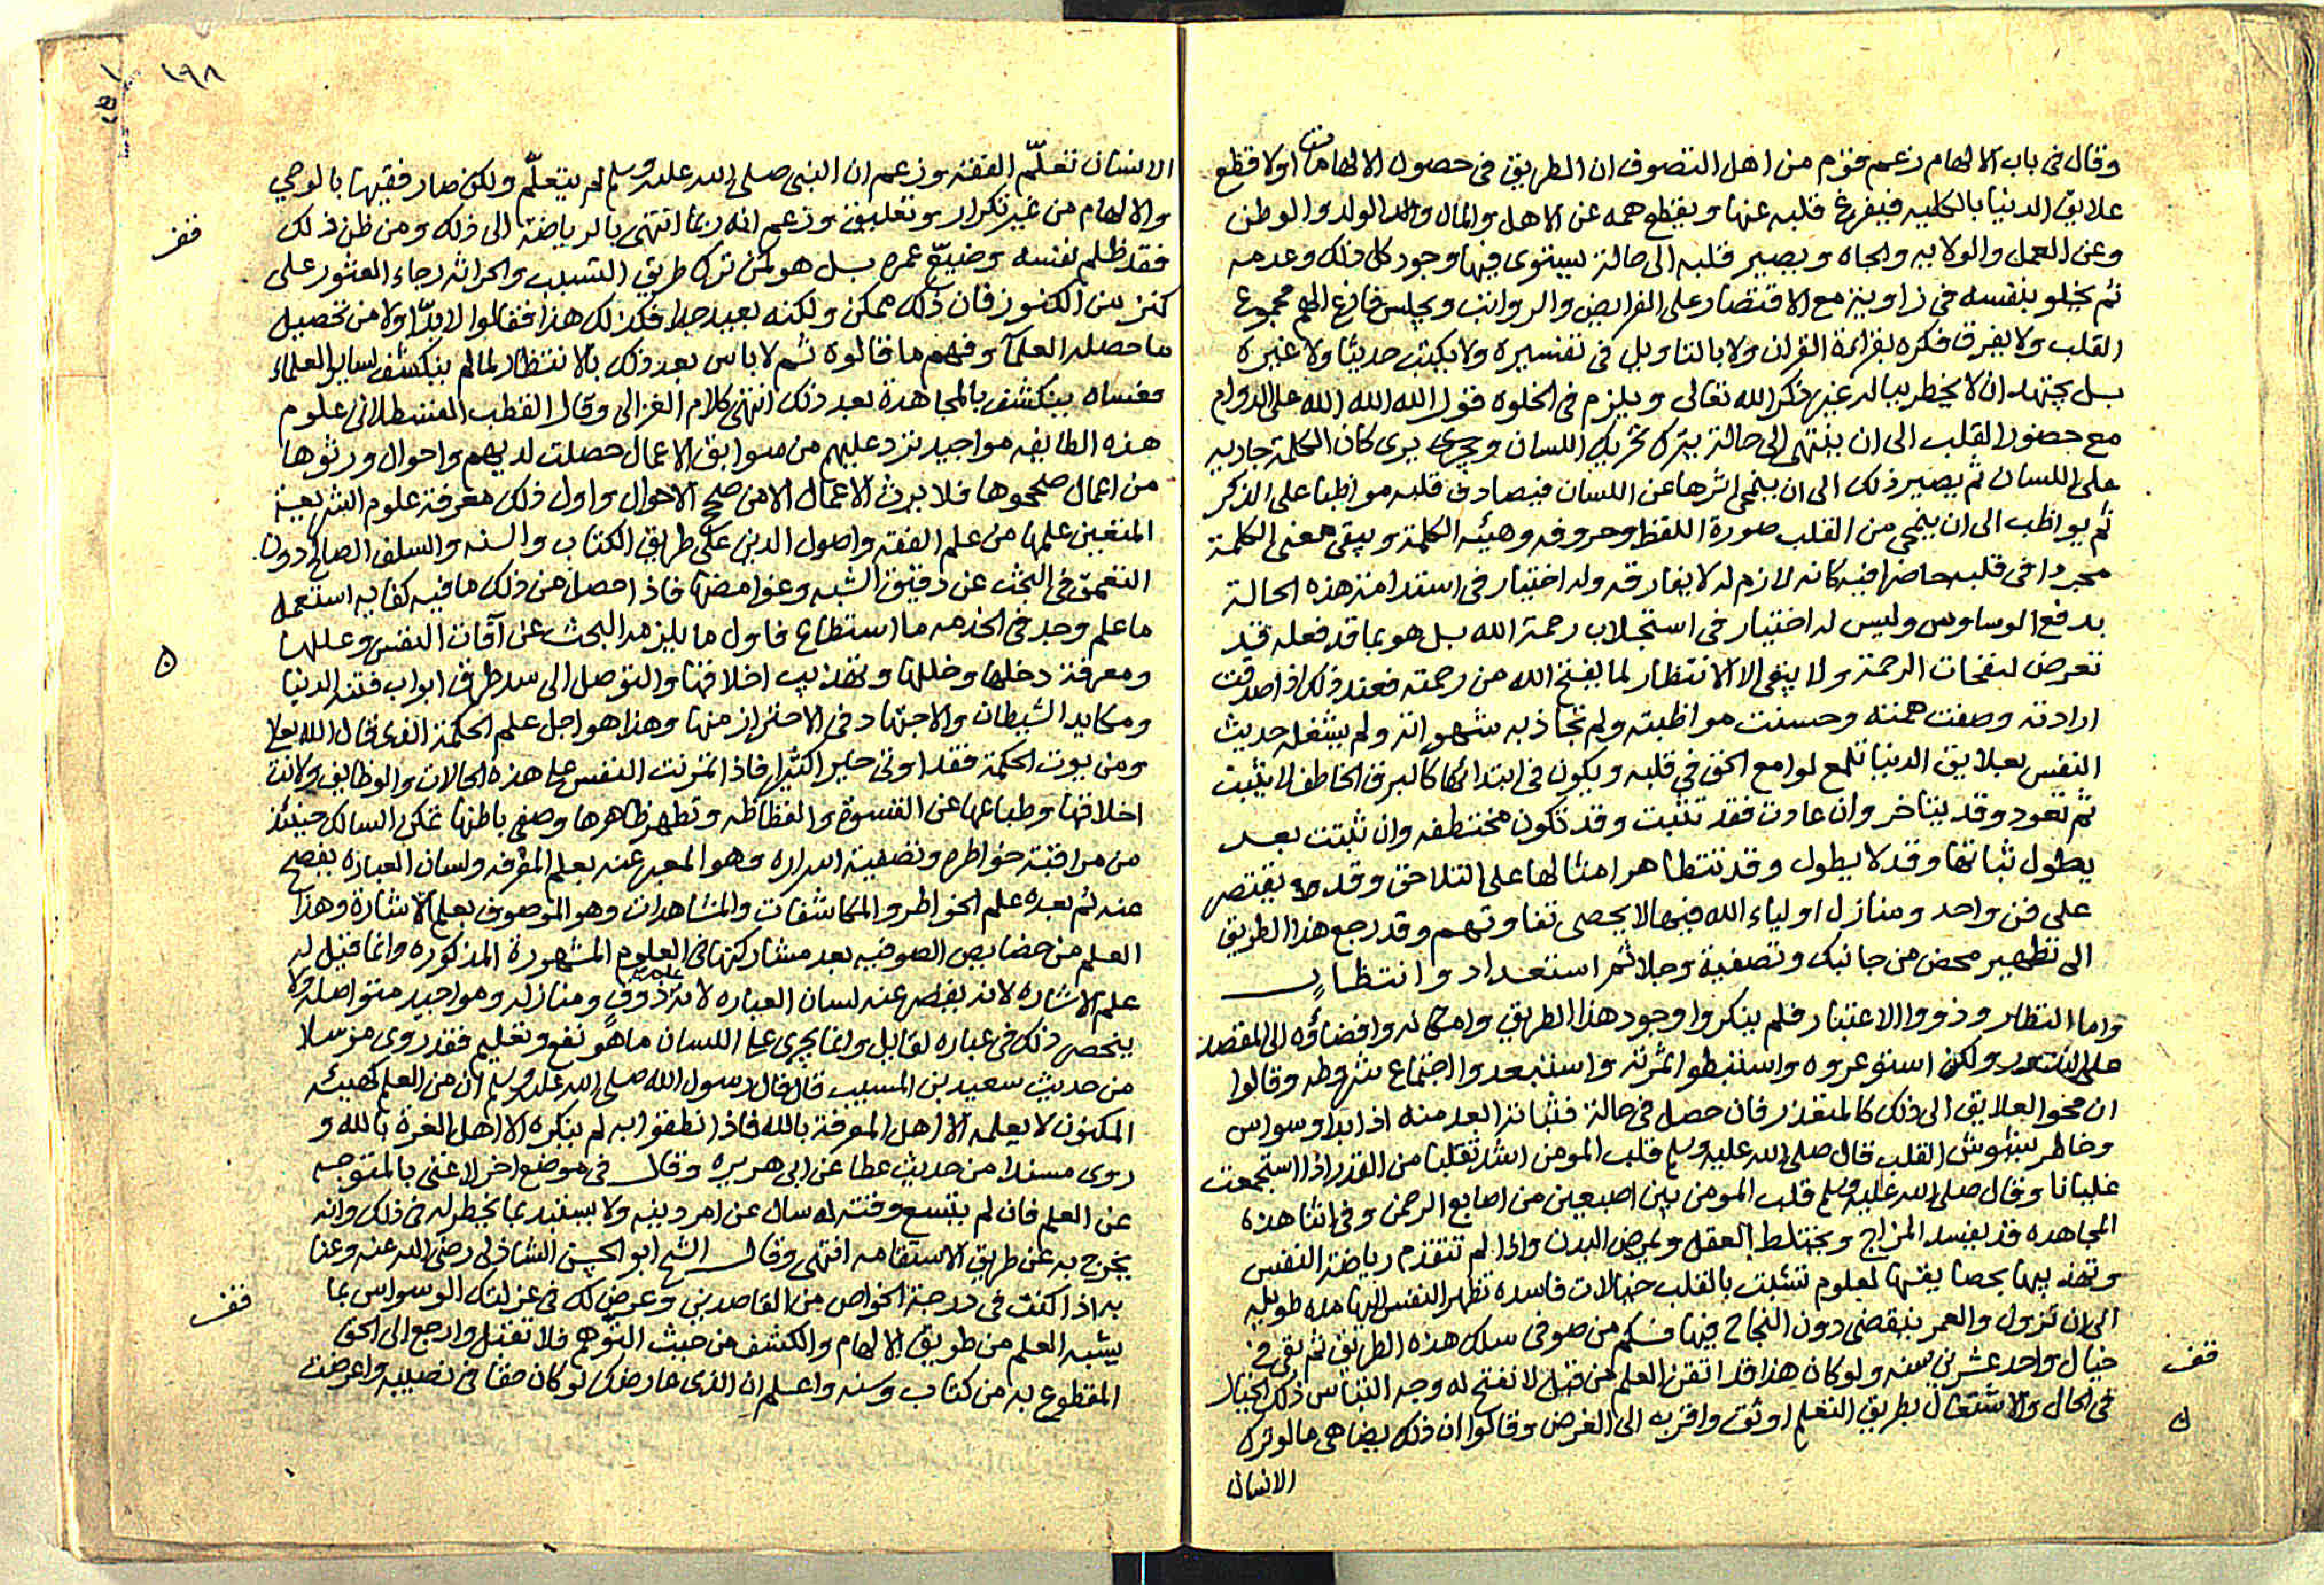 وقال فى باب الالهام زعم قوم من اهل التصوف ان الطريق فى حصول الالهامات اولا قطع
علايق الدنيا بالكليه فيفرغ قلبه عنها ويقطع همه عن الاهل والمال والولد والوطن
وعن العمل والولايه والجاه ويصير قلبه الى حالة يستوى فيها وجود كل ذلك وعدمه
ثم يخلو بنفسه فى زاوية مع الاقتصار على الفرايض والرواتب ويجلس فارغ الهم مجموع
القلب ولا يفرق فكره بقراءة القران ولا بالتاويل فى تفسيره ولا بكتب حديثا ولا غيره
بل يجتهد ان لا يخطر بباله غير ذكر الله تعالى ويلزم فى الخلوه قول الله الله الله على الدوام
مع حضور القلب الى ان ينتهى الى حالة يترك تحريك اللسان ويرى كان الكلمة جاريه
على اللسان ثم يصير ذلك الى ان ينمحى اثرها عن اللسان فيصادف قلبه مواظبا على الذكر
ثم يواظب الى ان ينمحى من القلب صورة اللفظ وحروفه وهيئه الكلمة ويبقى معنى الكلمة
مجردا فى قلبه حاضرا فيه كانه لازم له لا يفارقه وله اختيار فى استدامة هذه الحالة
بدفع الوساوس وليس له اختيار فى استجلاب رحمة الله بل هو بما قد فعله قد
تعرض لنفحات الرحمة ولا يبقى الا الانتظار لما يفتح الله من رحمته فعند ذلك اذا صدقت
ارادته وصفت همته وحسنت مواظبته ولم تجاذبه شهواته ولم يشغله حديث
النفس بعلايق الدنيا تلمع لوامع الحق فى قلبه ويكون فى ابتدائها كالبرق الخاطف لا يثبت
ثم تعود وقد يتاخر وان عادت فقد تثبت وقد تكون مختطفه وان ثبتت بعد
يطول ثباتها وقد لا يطول وقد تتظاهر امثالها على التلاحق وقد يقتصر
على فن واحد ومنازل اولياء الله فيها لا يحصى تفاوتهم وقد رجع هذا الطريق
الى تطهير محض من جانبك وتصفية وجلا ثم استعداد وانتظار
واما النظار وذووا الاعتبار فلم ينكروا وجود هذا الطريق وامكانه وافضاؤه الى المقصد
على الندور ولكن استوعروه واستبطوا ثمرته واستبعدوا اجتماع شروطه وقالوا
ان محو العلايق الى ذلك كالمتعذر فان حصل فى حالة فثباته ابعد منه اذ ابدا وسواس
وخاطر يشوش القلب قال صلى الله عليه وسلم قلب المومن اشد تقلبا من القدر اذا استجمعت
غليانا وقال صلى الله عليه وسلم قلب المومن بين اصبعين من اصابع الرحمن وفى اثنا هذه
المجاهده قد يفسد المزاج ويختلط العقل ويمرض البدن واذا لم تتقدم رياضة النفس
وتهذيبها بحقايقها لعلوم تشبثت بالقلب خيالات فاسده تظهر النفس اليها مده طويله
الى ان تزول والعمر ينقضى دون النجاح فيها فكم من صوفى سلك هذه الطريق ثم بقى فى
خيال واحد عشرين سنه ولو كان هذا قد اتقن العلم من قبل لانفتح له وجه التباس ذلك الخيال
فى الحال والاشتغال بطريق التعلم اوثق واقرب الى الغرض وقالوا ان ذلك يضاهى ما لو ترك
الانسان
قف
١٩٨
الانسان تعلّم الفقه وزعم ان النبى صلى الله عليه وسلم لم يتعلّم ولكن صار فقيها بالوحي
والالهام من غير تكرار وتعليق وزعم انه ربما انتهى بالرياضة الى ذلك ومن ظن ذلك
فقد ظلم نفسه وضيّع عمره بل هو كمن ترك طريق التسبب والحراثه رجاء العثور على
كنز من الكنوز فان ذلك ممكن ولكنه بعيد جدا فكذلك هذا فقالوا لا بدّ اولا من تحصيل
ما حصله العلما وفهم ما قالوه ثم لا باس بعد ذلك بالانتظار لما لم ينكشف لساير العلماء
فعساه ينكشف بالمجاهدة بعد ذلك انتهى كلام الغزالى وقال القطب القسطلانى علوم
هذه الطايفه مواجيد ترد عليهم من سوابق الاعمال حصلت لديهم واحوال ورثوها
من اعمال صححوها فلا يرث الاعمال الا من صحح الاحوال واول ذلك معرفة علوم الشريعة
المتعين علمها من علم الفقه واصول الدين على طريق الكتاب والسنه والسلف الصالح دون
التعمق فى البحث عن دقيق الشبه وغوامضها فاذا حصل من ذلك ما فيه كفايه استعمل
ما علم وجد فى الخدمه ما استطاع فاول ما يلزمه البحث عن آفات النفس وعللها
ومعرفة دخلها وخللها وتهذيب اخلاقها والتوصل الى سد طرق ابواب فتنة الدنيا
ومكايد الشيطان والاجتهاد فى الاحتراز منها وهذا هو اجل علم الحكمة الذى قال الله تعالى
ومن يوت الحكمة فقد اوتى خيرا كثيرا فاذا تمرنت النفس على هذه الحالات والوظايف ولانت
اخلاقها وطباعها عن القسوة والفظاظه وتطهر ظاهرها وصفى باطنها تمكن السالك حينئذ
من مراقبة خواطره وتصفية اسراره وهو المعبر عنه بعلم المعرفه ولسان العباره يفصح
عنه ثم بعده علم الخواطر والمكاشفات والمشاهدات وهو الموصوف بعلم الاشارة وهذا
العلم من خصايص الصوفيه بعد مشاركتها فى العلوم المشهورة المذكوره وانما قيل له
علم الاشاره لانه يقصر عنه لسان العباره لانه ذوق ومنازله ومواجيد متواصله ولا
ينحصر ذلك فى عباره لقايل وانما يجرى على اللسان ما هو نفع وتعليم فقد روى مرسلا
من حديث سعيد بن المسيب قال قال رسول الله صلى الله عليه وسلم ان من العلم كهيئه
المكنون لا يعلمه الا اهل المعرفة بالله فاذا نطقوا به لم ينكره الا اهل الغرة بالله و
روى مسندا من حديث عطا عن ابى هريره وقال فى موضع اخر لا غنى بالمتوجه
عن العلم فان لم يتسع وقته له سال عن امر دينه ولا يستبد بما يخطر له فى ذلك وانه
يخرج به عن طريق الاستقامه انتهى وقال الشيخ ابو الحسن الشاذلى رضى الله عنه وعنا
به اذا كنت فى درجة الخواص من القاصدين وعرض لك فى عزلتك الوسواس بما
يشبه العلم من طريق الالهام والكشف من حيث التوهم فلا تقبل وارجع الى الحق
المقطوع به من كتاب وسنه واعلم ان الذى عارضك لو كان حقا فى نصيبه واعرضت
قف
قف